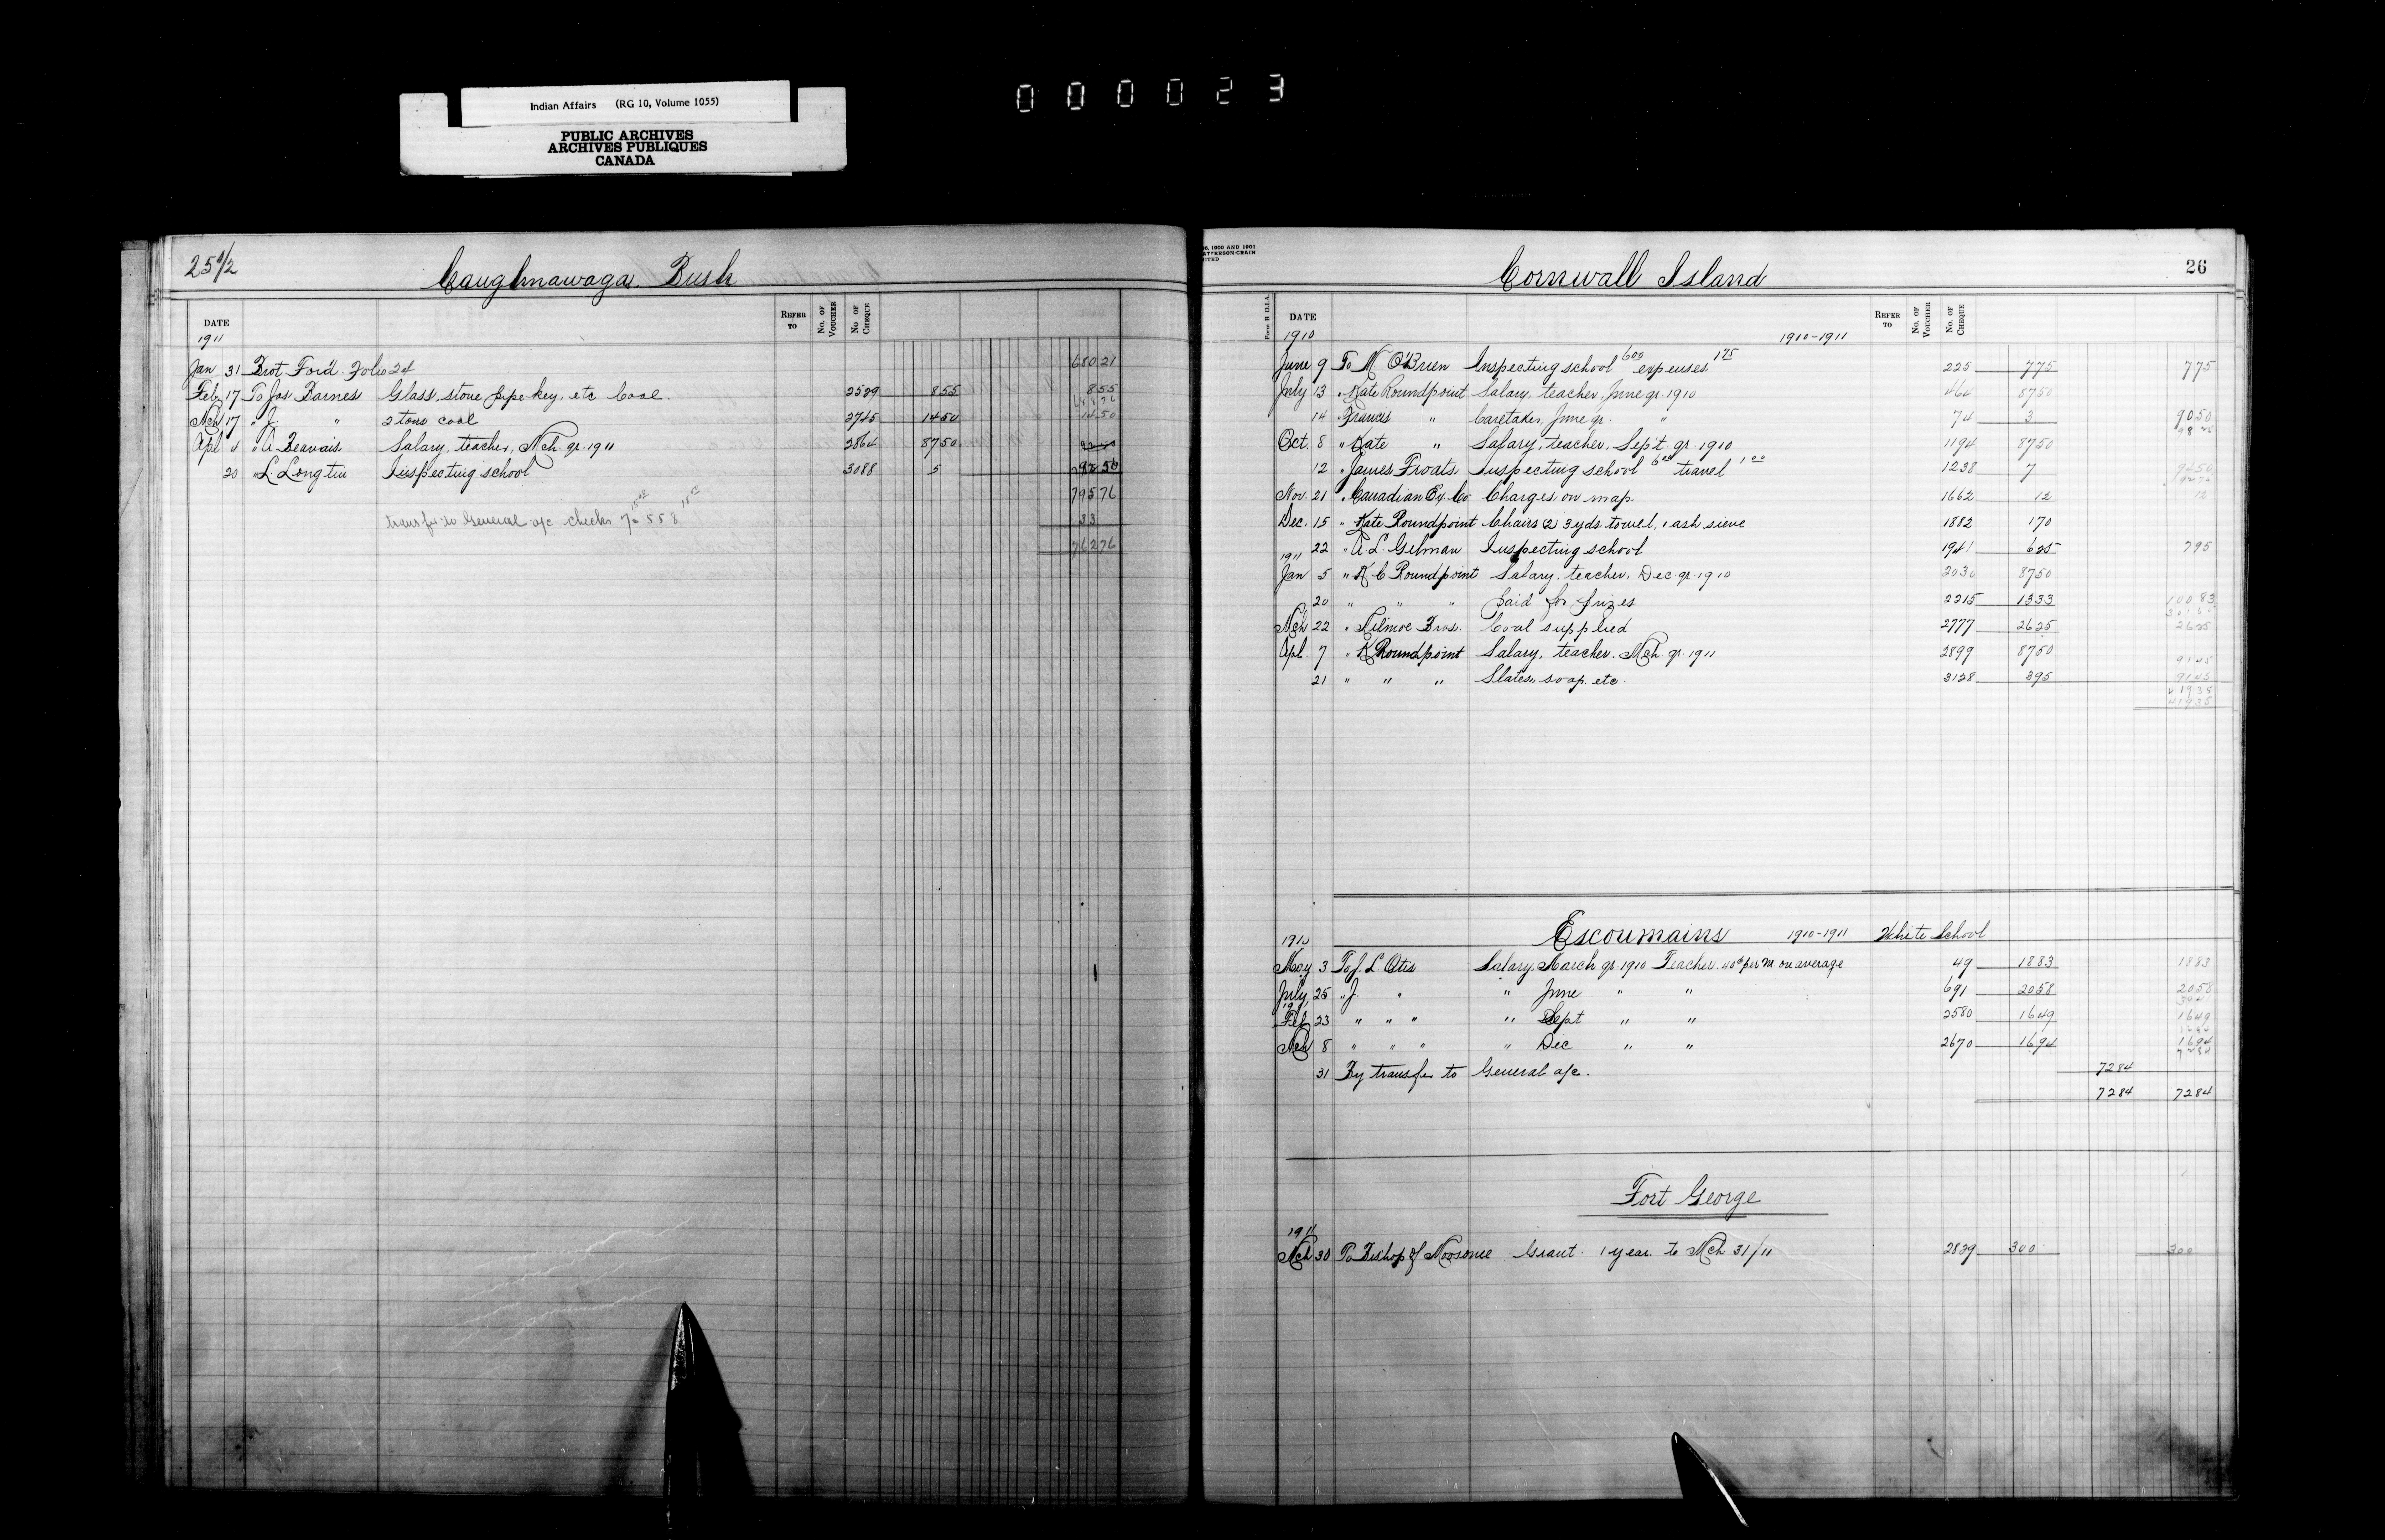 Indian Affairs (RG 10, Volume 1055)
PUBLIC ARCHIVES
ARCHIVES PUBLIQUES
CANADA
000023
25 1/2
Caughnawaga Bush
DATE REFER TO No. OF VOUCHER No OF CHEQUE
1911
Jan 31 Brot Ford. Folio 24 680 21
Feb 17 To Jas Barnes Glass, stove pipe key, etc Coal. 2529 8 55 8 55
Mch 17 " J. " 2 tons coal 2725 14 50 14 50
Apl 4 " A Beauvais Salary, teacher, Mch. qr. 1911 2864 87 50
20 " L. Longtin Inspecting school 3088 5 92 50
795 76
transfer to General a/c checks 7 15 00 558 18 00 33
762 76
06, 1900 AND 1901
ATTERSON-CRAIN
ITED
Cornwall Island
26
Form B D.I.A. DATE REFER TO No. OF VOUCHER No. OF CHEQUE
1910 1910-1911
June 9 To M. O'Brien Inspecting school 6 00 expenses 1 75 225 7 75 7 75
July 13 " Kate Roundpoint Salary, teacher, June qr 1910 464 87 50
14 " Francis " Caretaker, June qr. " 74 3 90 50
98 25
Oct. 8 " Kate " Salary, teacher, Sept. qr. 1910 1194 87 50
12 " James Froats Inspecting school 6 00 travel 1 00 1238 7 94 50
Nov. 21 " Canadian Ex. Co Charges on map 1662 12 12
Dec. 15 " Kate Roundpoint Chairs (2) 3 yds towel, 1 ash sieve 1882 1 70
22 " A. L. Gilman Inspecting school 1941 6 25 7 95
1911
Jan 5 " K C Roundpoint Salary, teacher, Dec. qr. 1910 2030 87 50
20 " " " Paid for prizes 2215 13 33 100 83
Mch 22 " Kilmoe Bros. Coal supplied 2777 26 25 26 25
Apl. 7 " K Roundpoint Salary, teacher, Mch. qr. 1911 2899 87 50
91 45
21 " " " Slates, soap, etc. 3128 3 95 91 45
419 35
419 35
Escoumains 1910-1911 White School
1910
May 3 To J. L Otis Salary March qr. 1910 Teacher. 40¢ per M. on average 49 18 83 18 83
July 25 " J. " " June " " 691 20 58 20 58
Feb 23 " " " " Sept " " 2580 16 49 16 49
Mch 8 " " " " Dec " " 2670 16 94 16 94
72 84
31 By transfer to General a/c. 72 84
72 84 72 84
Fort George
1911
Mch 30 To Bishop of Moosonee Grant. 1 year to Mch 31/11 2829 300 300